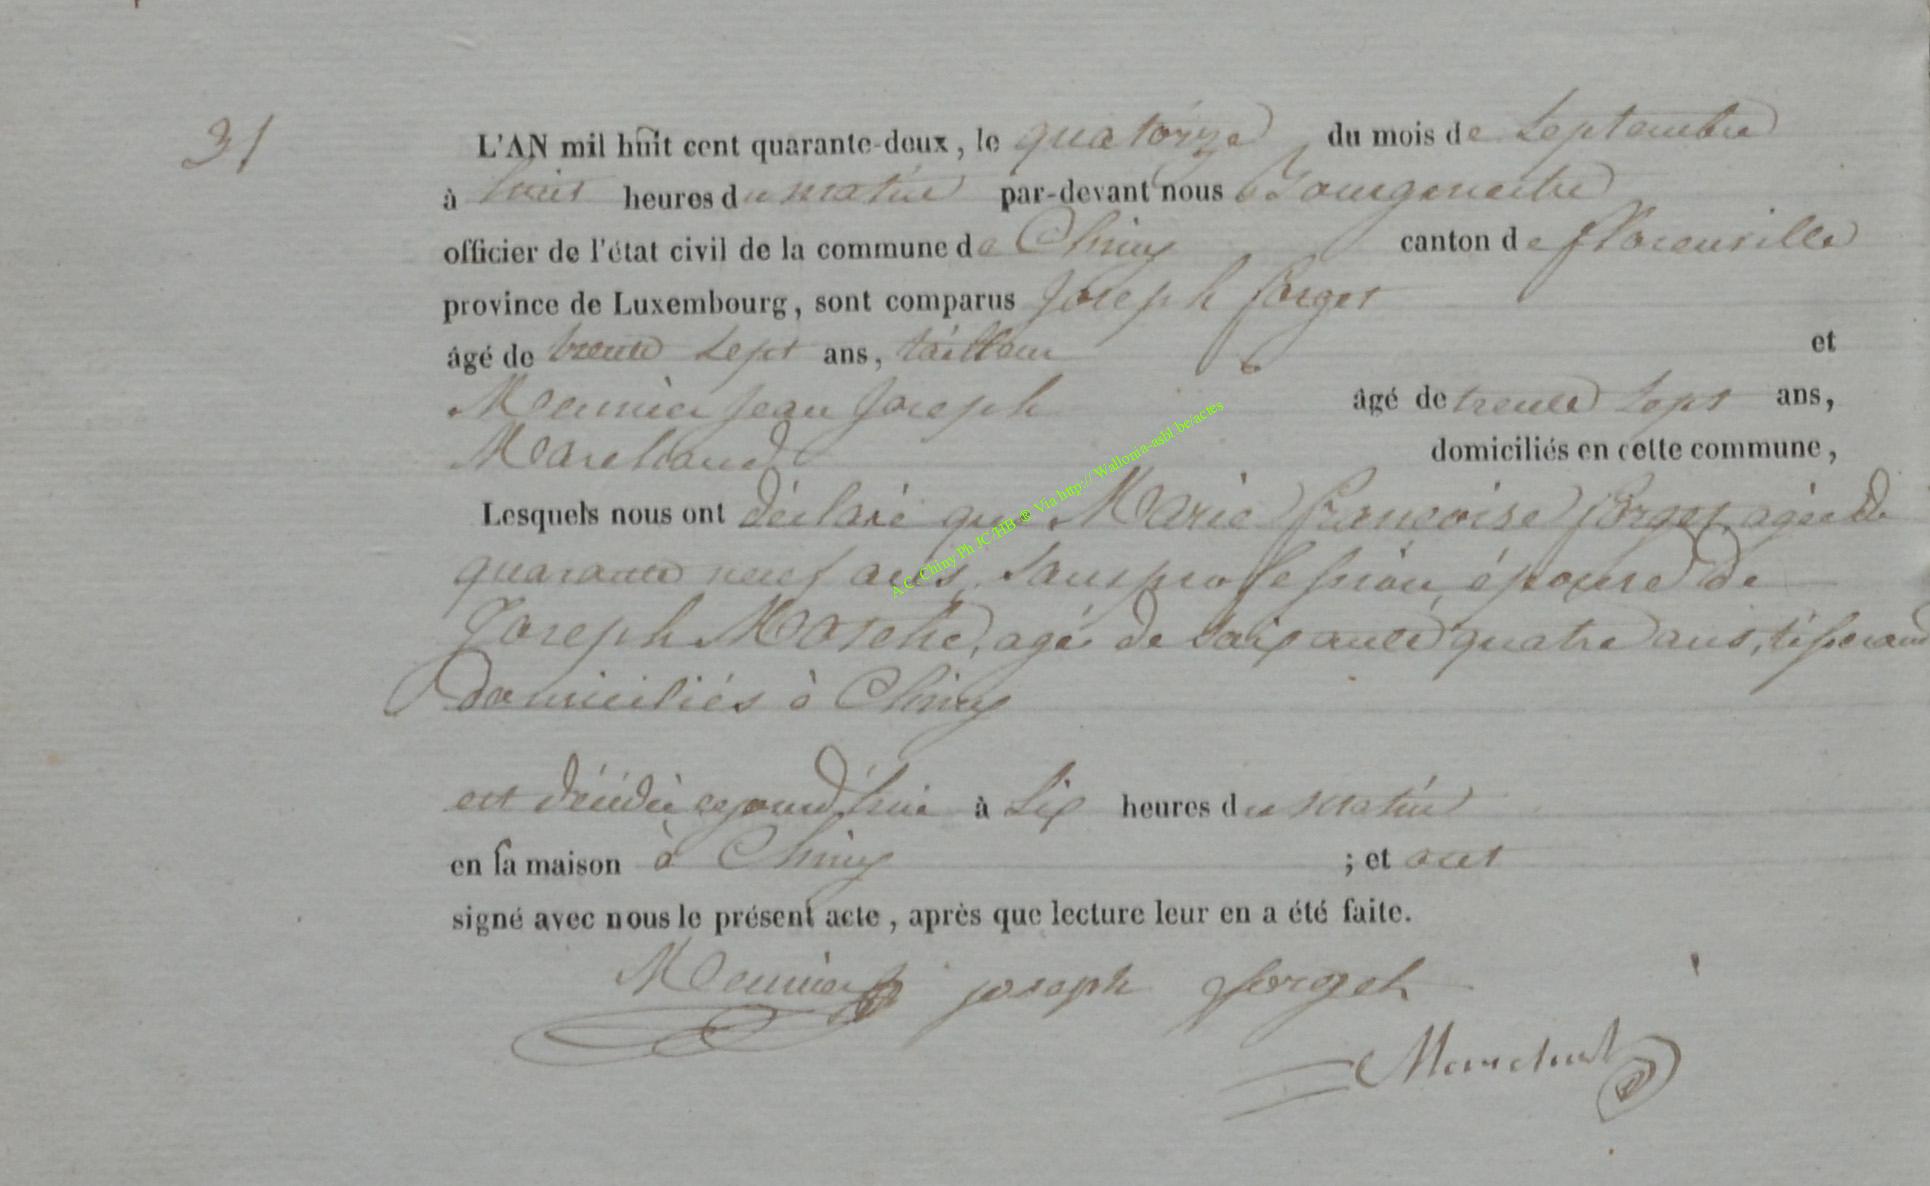 31
L'AN mil huit cent quarante-deux, le quatorze du mois de Septembre
à huit heures du matin par-devant nous Bourgmestre
officier de l'état civil de la commune de Chiny canton de florenville
province de Luxembourg, sont comparus Joseph forget
âgé de trente sept ans, tailleur et
Meunier Jean Joseph âgé de trente sept ans,
Marchand domiciliés en cette commune,
Lesquels nous ont déclaré que Marie françoise forget, agée de
quarante neuf ans, sans profession, épouse de
Joseph agé de soixante quatre ans, tisserand
domiciliés à Chiny
est décédée cejourd'hui à Six heures du matin
en sa maison à Chiny ; et ont
signé avec nous le présent acte, après que lecture leur en a été faite.
Meunier joseph forget
A.C. Chiny Ph JC/HB ® Via http://Wallonia-asbl.be/actes